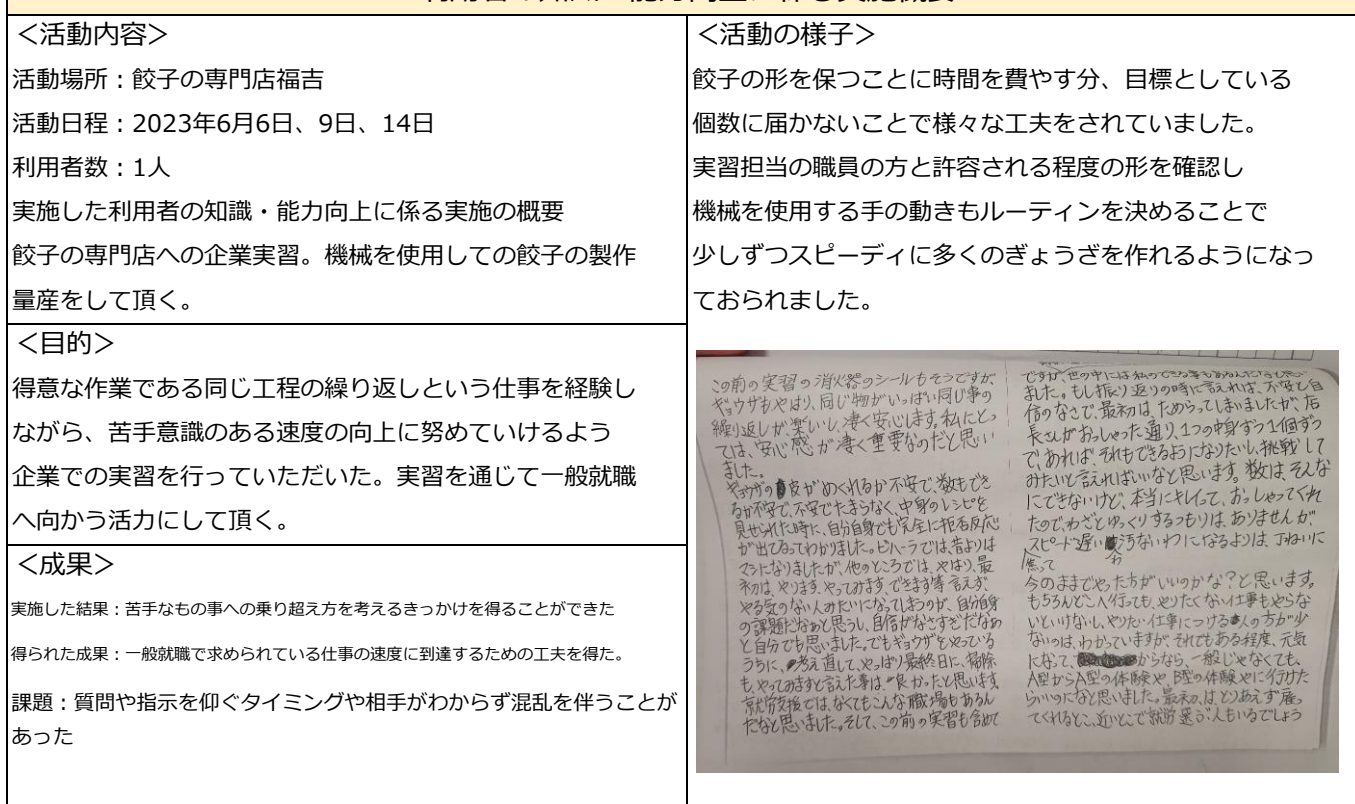 ＜活動内容＞
活動場所：餃子の専門店福吉
活動日程：2023年6月6日、9日、14日
利用者数：1人
実施した利用者の知識・能力向上に係る実施の概要
餃子の専門店への企業実習。機械を使用しての餃子の製作
量産をして頂く。
＜目的＞
得意な作業である同じ工程の繰り返しという仕事を経験し
ながら、苦手意識のある速度の向上に努めていけるよう
企業での実習を行っていただいた。実習を通じて一般就職
へ向かう活力にして頂く。
＜成果＞
実施した結果：苦手なもの事への乗り超え方を考えるきっかけを得ることができた
得られた成果：一般就職で求められている仕事の速度に到達するための工夫を得た。
課題：質問や指示を仰ぐタイミングや相手がわからず混乱を伴うことが
あった
＜活動の様子＞
餃子の形を保つことに時間を費やす分、目標としている
個数に届かないことで様々な工夫をされていました。
実習担当の職員の方と許容される程度の形を確認し
機械を使用する手の動きもルーティンを決めることで
少しずつスピーディに多くのぎょうざを作れるようになっ
ておられました。
この前の実習の消火器のシールもそうですが、
ギョウザもやはり、同じ物がいっぱい同じ事の
繰り返しが、楽しいし、凄く安心します。私にとっ
ては、安心感が凄く重要なのだと思い
ました。
ギョウザの皮がめくれるか不安で、数もでき
るか不安で、不安でたまらなく、中身のレシピを
見せられた時に、自分自身でも完全に拒否反応
が出てるってわかりました。ビハーラでは、昔よりは
マシになりましたが、他のところでは、やはり、最
初は、やります、やってみます、できます等 言えず、
やる気のない人みたいになってしまうのが、自分自身
の課題だなぁと思うし、自信がなさすぎだなぁ
と自分でも思いました。でもギョウザをやっている
うちに、考え直して、やっぱり最終日に、掃除
も、やってみますと言えた事は、良かったと思います。
就労支援では、なくてもこんな職場もあるん
だなと思いました。そして、この前の実習も含めて
ですが、世の中には私のできる事もあるんだなと思い
ました。もし振り返りの時に言えれば、不安と自
信のなさで、最初は、ためらってしまいましたが、店
長さんがおっしゃった通り、1つの中身ずつ1個ずつ
で、あれば それもできるようになりたいし、挑戦して
みたいと言えればいいなと思います。数は、そんな
にできないけど、本当にキレイって、おっしゃってくれ
たので、わざとゆっくりするつもりは、ありませんが、
スピード遅い 汚ないわになるよりは、丁ねいに
焦って
今のままでやった方がいいのかな？と思います。
もちろんどこへ行っても、やりたくない仕事もやらな
いといけないし、やりたい仕事につける人の方が少
ないのは、わかっていますが、それでもある程度、元気
になって、からなら、一般じゃなくても、
A型からA型の体験や、B型の体験やに行けた
らいいのになと思いました。最初は、とりあえず雇っ
てくれるとこ、近いとこで就労選ぶ人もいるでしょう